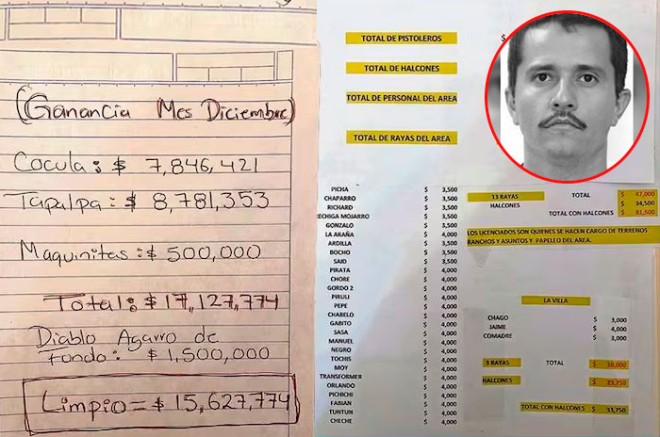 (Ganancia Mes Diciembre)
Cocula: $ 7,846,421
Tapalpa: $ 8,781,353
Maquinitas: $ 500,000
Total: $ 17,127,774
Diablo Agarro de
fondo: $ 1,500,000
Limpio = $ 15,627,774
TOTAL DE PISTOLEROS
TOTAL DE HALCONES
TOTAL DE PERSONAL DEL AREA
TOTAL DE RAYAS DEL AREA
PICHA $ 3,500
CHAPARRO $ 3,500
RICHARD $ 3,500
RECHIGA MOJARRO $ 3,500
GONZALO $ 3,500
LA ARAÑA $ 4,000
ARDILLA $ 3,500
BOCHO $ 3,500
SAID $ 3,500
PIRATA $ 4,000
CHORE $ 4,000
GORDO 2 $ 4,000
PIRULI $ 4,000
PEPE $ 4,000
CHABELO $ 4,000
GABITO $ 4,000
SASA $ 4,000
MANUEL $ 4,000
NEGRO $ 4,000
TOCHIS $ 4,000
MOY $ 4,000
TRANSFORMER $ 4,000
ORLANDO $ 4,000
PICHICHI $ 4,000
FABIAN $ 4,000
TUNTUN $ 4,000
CHECHE $ 4,000
13 RAYAS TOTAL $ 47,000
HALCONES $ 34,500
TOTAL CON HALCONES $ 81,500
LOS LICENCIADOS SON QUIENES SE HACEN CARGO DE TERRENOS
RANCHOS Y ASUNTOS Y PAPELEO DEL AREA.
LA VILLA
CHAGO $ 3,000
JAIME $ 4,000
COMADRE $ 3,000
3 RAYAS TOTAL $
HALCONES $
TOTAL CON HALCONES $ 33,750